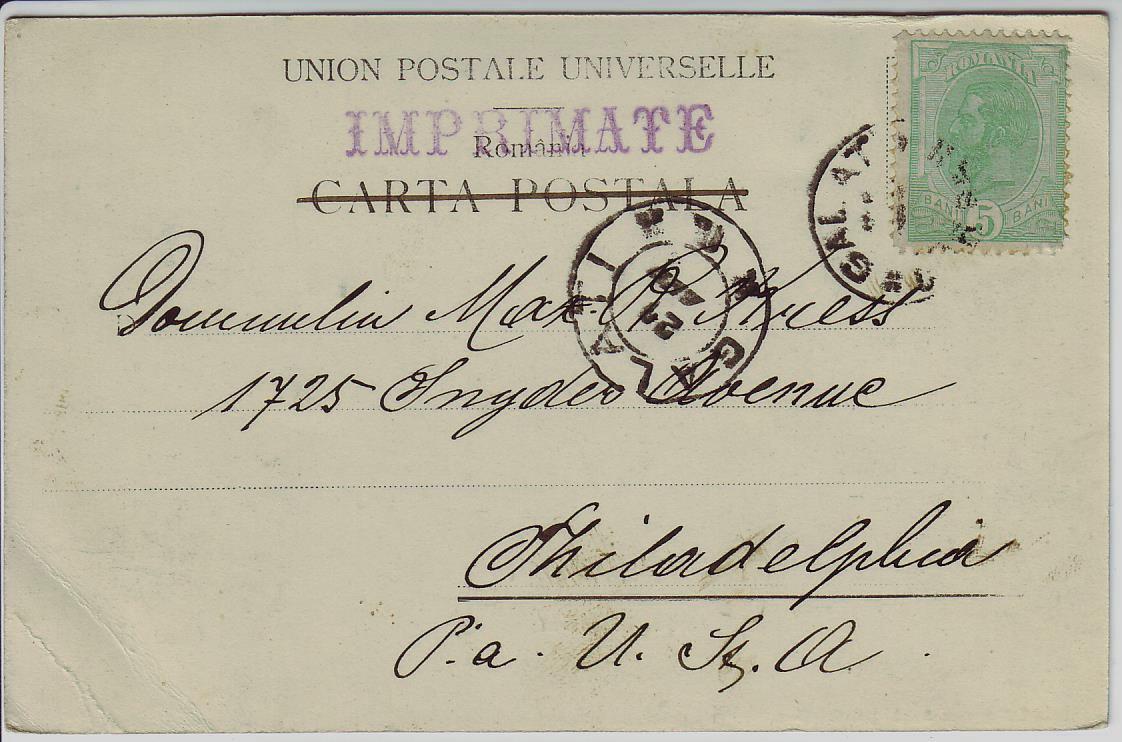 UNION POSTALE UNIVERSELLE
IMPRIMATE
România
CARTA POSTALA
ROMANIA
BANI 5 BANI
GALATI
GALATI
21
Domnului Max R. Kriess
1725 Snyder Avenue
Philadelphia
P.a. U. St. A.